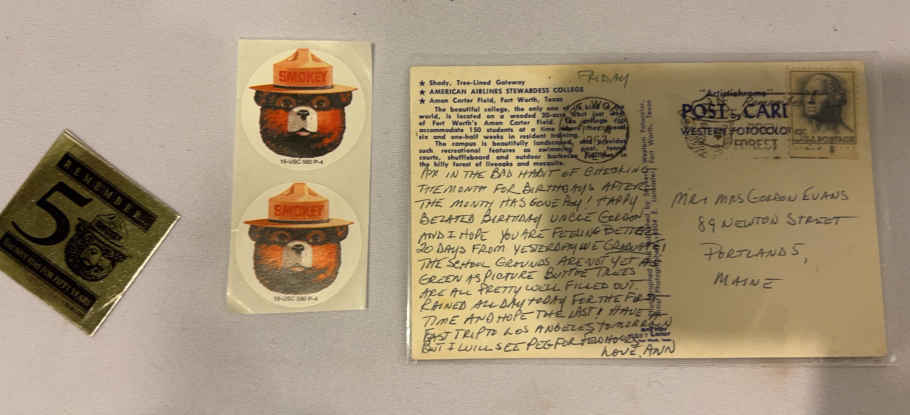 REMEMBER
50
SMOKEY
18-USC 580 P-4
SMOKEY
18-USC 580 P-4
★ Shady, Tree-Lined Gateway
★ AMERICAN AIRLINES STEWARDESS COLLEGE
★ Amon Carter Field, Fort Worth, Texas
The beautiful college, the only one
world, is located on a wooded 20-acre just
of Fort Worth's Amon Carter Field. The college can
accommodate 150 students at a time
six and one-half weeks in resident training.
The campus is beautifully landscaped, and provides
such recreational features as swimming pool, tennis
courts, shuffleboard and outdoor barbecue
the hilly forest of liveoaks and mesquite.
FRIDAY
AM IN THE BAD HABIT OF CHECKING
THE MONTH FOR BIRTHDAYS AFTER
THE MONTH HAS GONE BY! HAPPY
BELATED BIRTHDAY UNCLE GORDON
AND I HOPE YOU ARE FEELING BETTER
20 DAYS FROM YESTERDAY WE GRADUATE!
THE SCHOOL GROUNDS ARE NOT YET AS
GREEN AS PICTURE BUT THE TREES
ARE ALL PRETTY WELL FILLED OUT.
RAINED ALL DAY TODAY FOR THE FIRST
TIME AND HOPE THE LAST! HAVE A
FAST TRIP TO LOS ANGELES TOMORROW
BUT I WILL SEE PEG FOR HOURS
LOVE, ANN
"Artistichrome"
POST CARD
WESTERN FOTOCOLOR
FOREST
POSTAGE
MR & MRS GORDON EVANS
89 NEWTON STREET
PORTLAND 5,
MAINE